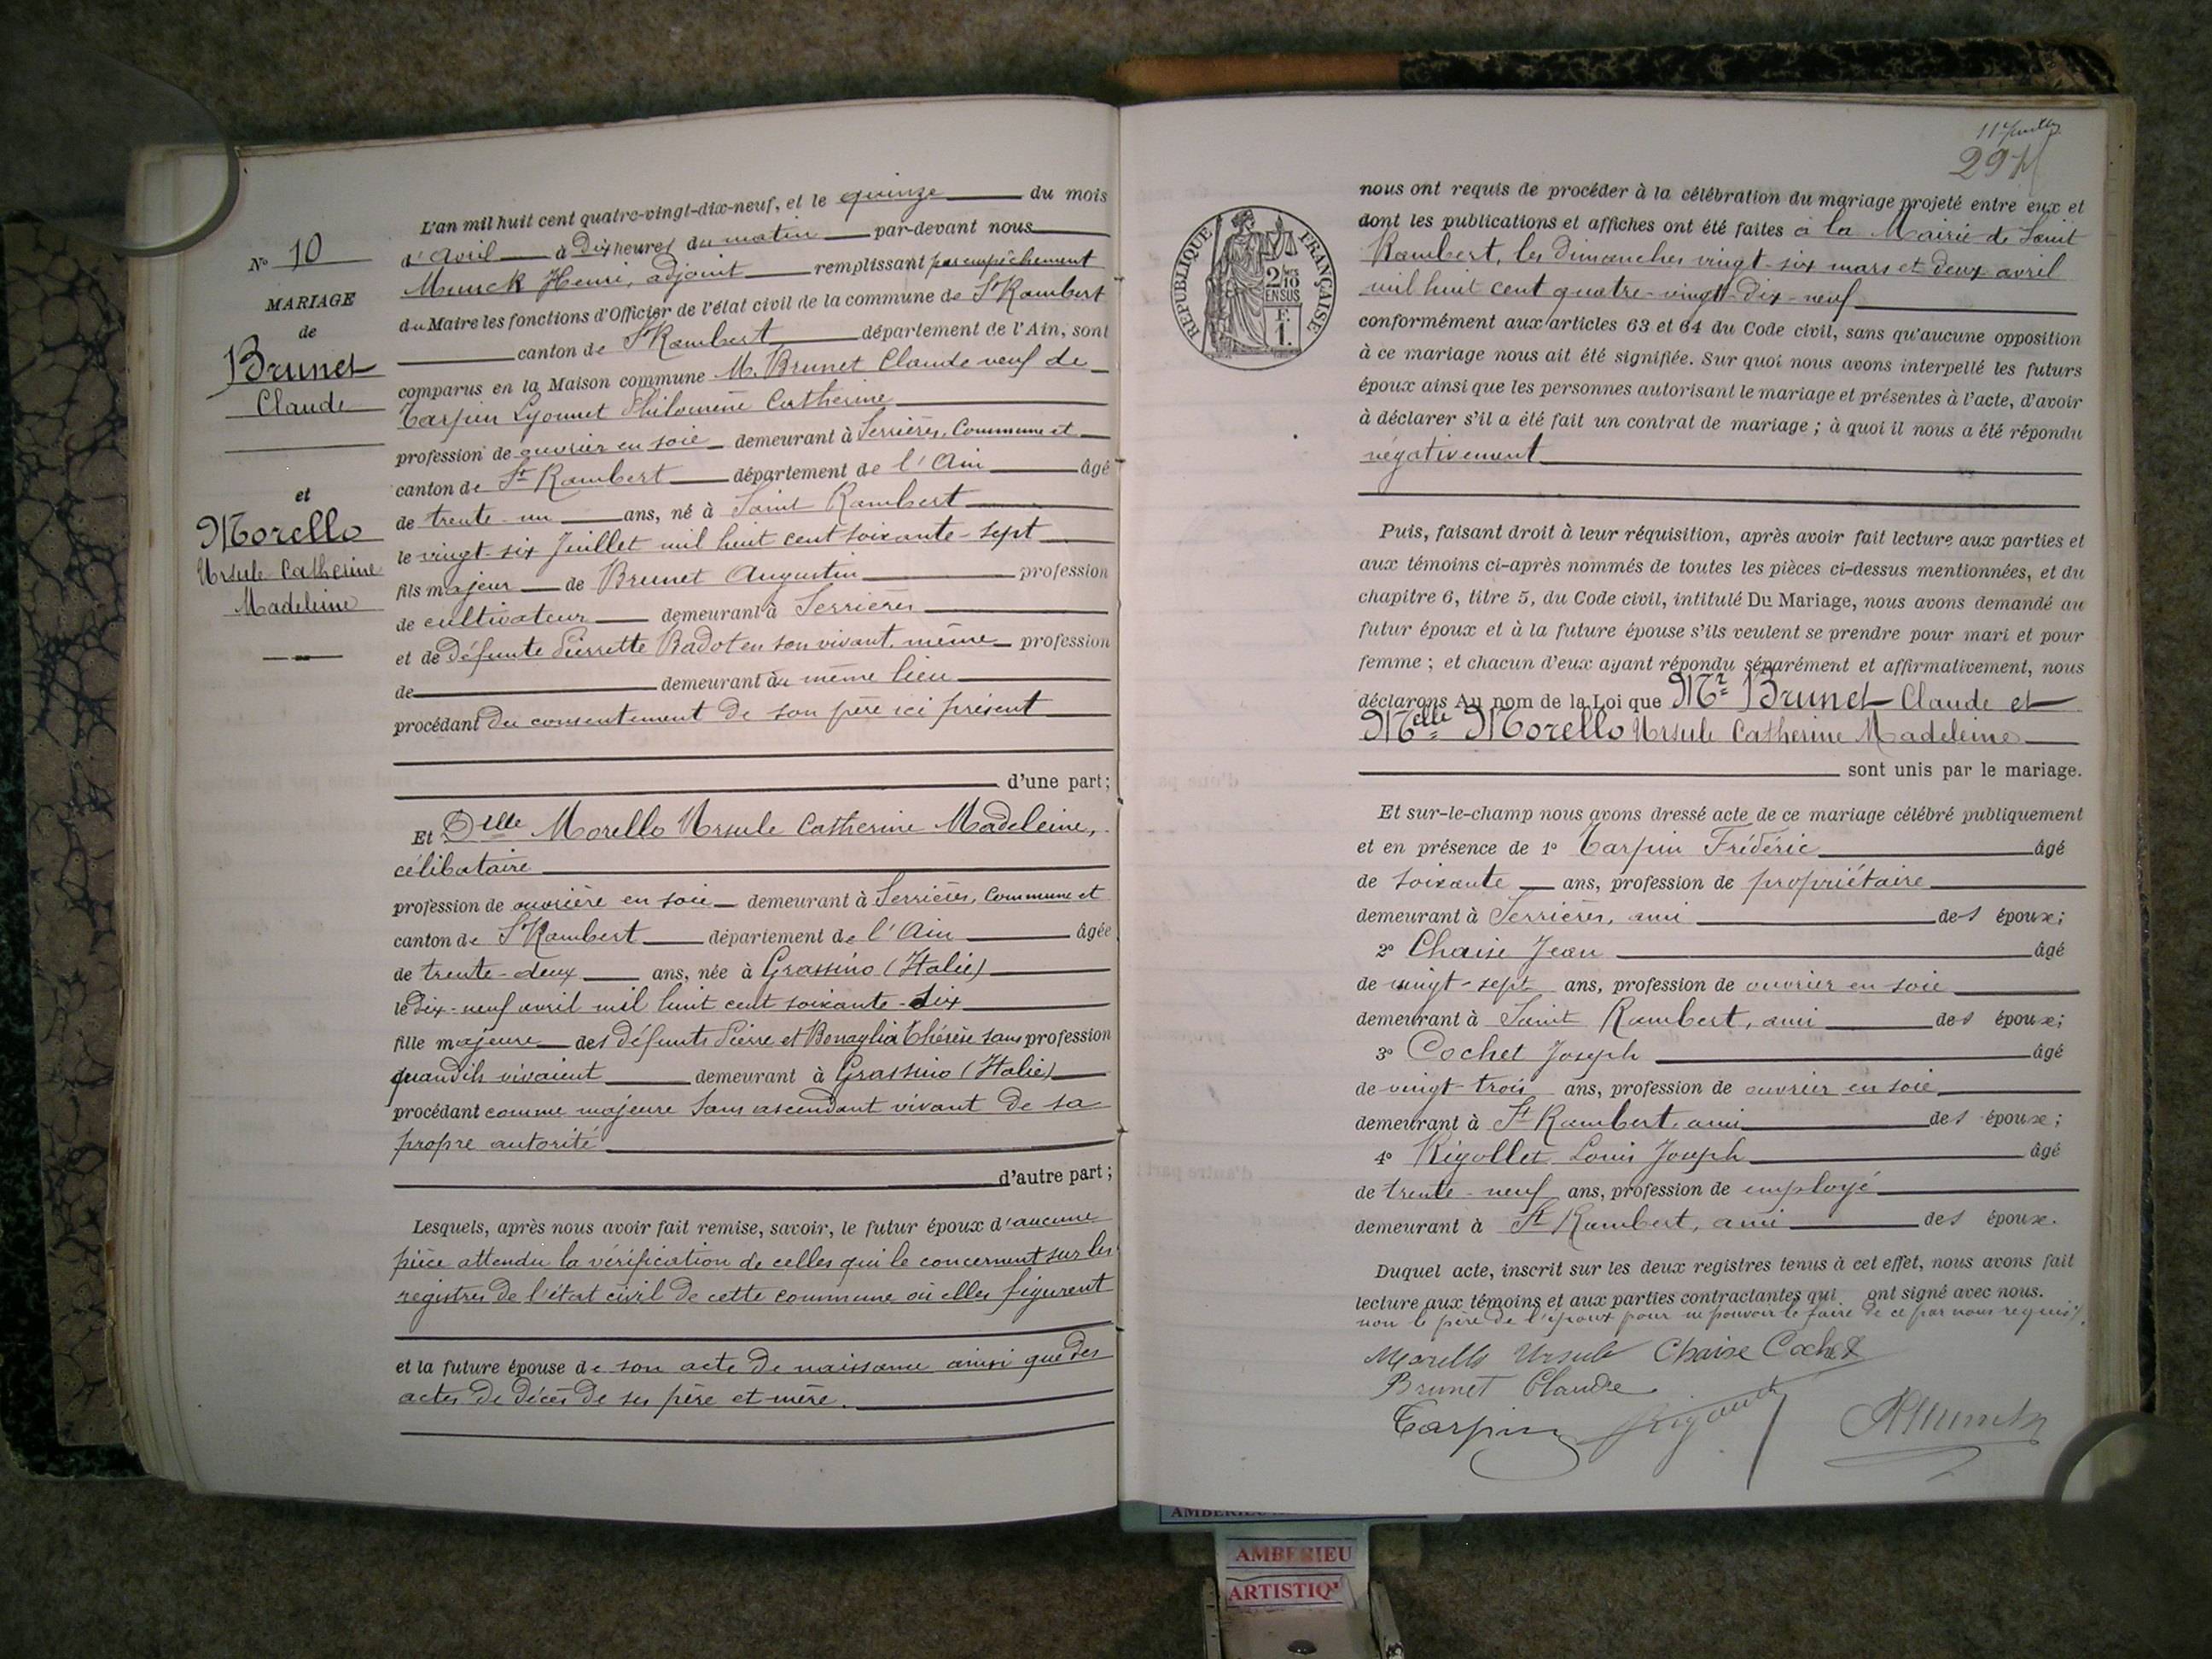 L'an mil huit cent quatre-vingt-dix-neuf, et le quinze du mois
d'avril à Dix heures du matin par-devant nous
Munck Henri, adjoint remplissant par empêchement
du Maire les fonctions d'Officier de l'état civil de la commune de St Rambert
canton de St Rambert département de l'Ain, sont
comparus en la Maison commune M. Brunet Claude veuf de
Tarpin Lyonnet Philomène Catherine
profession de ouvrier en soie demeurant à Serrières, Commune et
canton de St Rambert département de l'Ain âgé
de trente-un ans, né à Saint Rambert
le vingt six Juillet mil huit cent soixante-sept
fils majeur de Brunet Augustin profession
de cultivateur demeurant à Serrières
et de défunte Pierrette Radot en son vivant, même profession
de demeurant au même lieu
procédant du consentement de son père ici présent
d'une part;
Et Delle Morello Ursule Catherine Madeleine,
célibataire
profession de ouvrière en soie demeurant à Serrières, Commune et
canton de St Rambert département de l'Ain âgée
de trente-deux ans, née à Grassino (Italie)
le dix-neuf avril mil huit cent soixante-six
fille majeure des défunts Pierre et Bonaglia Thérèse sans profession
quand ils vivaient demeurant à Grassino (Italie)
procédant comme majeure sans ascendant vivant de sa
propre autorité
d'autre part;
Lesquels, après nous avoir fait remise, savoir, le futur époux d'aucune
pièce attendu la vérification de celles qui le concernent sur les
registres de l'état civil de cette commune où elles figurent
et la future épouse de son acte de naissance ainsi que des
actes de décès de ses père et mère.
No 10
MARIAGE
de
Brunet
Claude
et
Morello
Ursule Catherine
Madeleine
297
nous ont requis de procéder à la célébration du mariage projeté entre eux et
dont les publications et affiches ont été faites à la Mairie de Saint
Rambert, les Dimanches vingt-six mars et deux avril
mil huit cent quatre-vingt-dix-neuf
conformément aux articles 63 et 64 du Code civil, sans qu'aucune opposition
à ce mariage nous ait été signifiée. Sur quoi nous avons interpellé les futurs
époux ainsi que les personnes autorisant le mariage et présentes à l'acte, d'avoir
à déclarer s'il a été fait un contrat de mariage; à quoi il nous a été répondu
négativement
Puis, faisant droit à leur réquisition, après avoir fait lecture aux parties et
aux témoins ci-après nommés de toutes les pièces ci-dessus mentionnées, et du
chapitre 6, titre 5, du Code civil, intitulé Du Mariage, nous avons demandé au
futur époux et à la future épouse s'ils veulent se prendre pour mari et pour
femme; et chacun d'eux ayant répondu séparément et affirmativement, nous
déclarons Au nom de la Loi que Mr Brunet Claude et
Melle Morello Ursule Catherine Madeleine
sont unis par le mariage.
Et sur-le-champ nous avons dressé acte de ce mariage célébré publiquement
et en présence de 1o Tarpin Frédéric âgé
de soixante ans, profession de propriétaire
demeurant à Serrières, ami des époux;
2o Chaise Jean âgé
de vingt-sept ans, profession de ouvrier en soie
demeurant à Saint Rambert, ami des époux;
3o Cochet Joseph âgé
de vingt-trois ans, profession de ouvrier en soie
demeurant à St Rambert, ami des époux;
4o Rigollet Louis Joseph âgé
de trente-neuf ans, profession de employé
demeurant à St Rambert, ami des époux.
Duquel acte, inscrit sur les deux registres tenus à cet effet, nous avons fait
lecture aux témoins et aux parties contractantes qui ont signé avec nous.
non le père de l'époux pour ne pouvoir le faire de ce par nous requis.
Morello Ursule Chaise Cochet
Brunet Claude
Tarpin
HMunck
RÉPUBLIQUE FRANÇAISE
2/10
EN SUS
F.
1.
AMBERIEU
ARTISTIQ